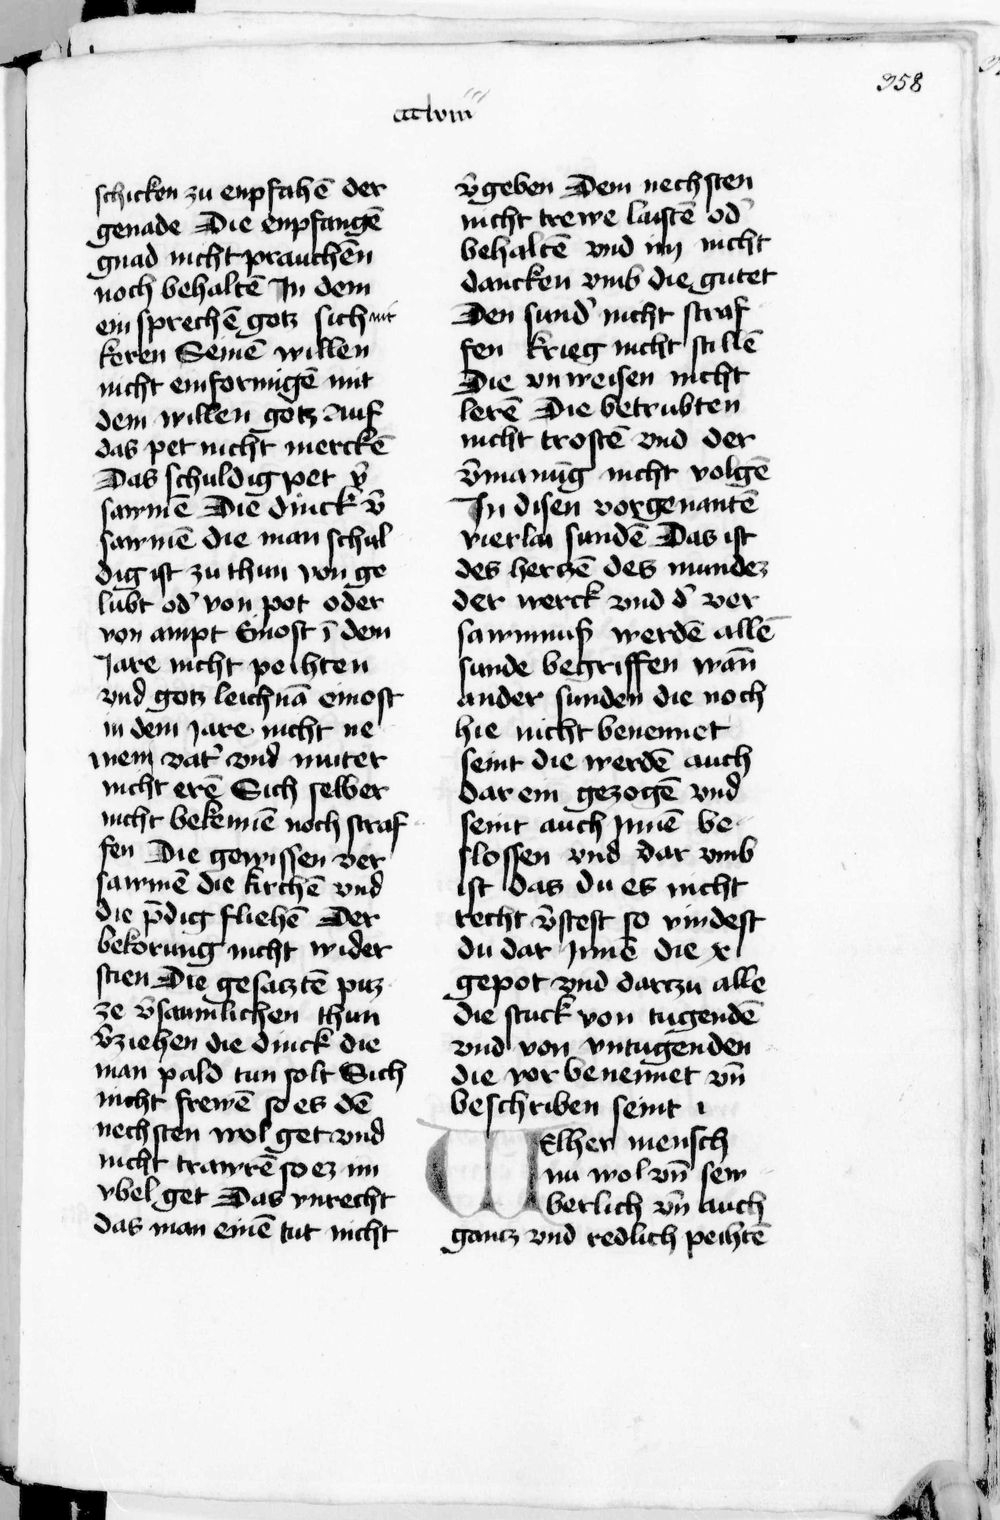 358
ccclviii
schicken zu enpfahē der
genade Die enpfangē
gnad nicht prauchen
noch behaltē In dem
ein sprechē gotz sich nit
keren Seinē willen
nicht einformigē mit
dem willen gotz Auf
das pet nicht merckē
Das schuldig pet v̄
sawmē Die dinck v̄
sawmē die man schul
dig ist zu thun von ge
lubt od' von pot oder
von ampt Einost ī dem
Jare nicht peichten
vnd gotz leichnā einost
in dem Jare nicht ne
mem vat' vnd muter
nicht erē Sich selber
nicht bekennē noch straf
fen Die gewissen ver
sawmē die kirchē vnd
die p̄dig fliehē Der
bekorung nicht wider
stien Die gesatztē puz
ze v̄saumlichen thun
v̄ziehen die dinck die
man pald tun solt Sich
nicht frewē so es dē
nechsten wol get vnd
nicht trawrē so ez im
vbel get Das vnrecht
das man einē tut nicht
v̄geben Dem nechsten
nicht trewe laistē od'
behaltē vnd im nicht
dancken vmb die gutet
Den sund' nicht straf
fen krieg nicht stillē
Die vnweisen nicht
lerē Die betrubten
nicht trostē vnd der
v̄manūg nicht volgē
In disen vorgenantē
vierlai sundē Das ist
des hertzē des mundez
der werck vnd d' ver
sawmnuß werdē allē
sunde begriffen wan̄
ander sunden die noch
hie nicht benennet
seint die werdē auch
dar ein gezogē vnd
seint auch Jnnē be
slossen vnd dar vmb
ist das du es nicht
recht v̄stest so vindest
du dar Jnnē die x
gepot vnd dartzu alle
die stuck von tugendē
vnd von vntugenden
die vor benennet vn̄
beschriben seint
WElher mensch
nu wol vn̄ sew
berlich vn̄ auch
gantz vnd redlich peichtē